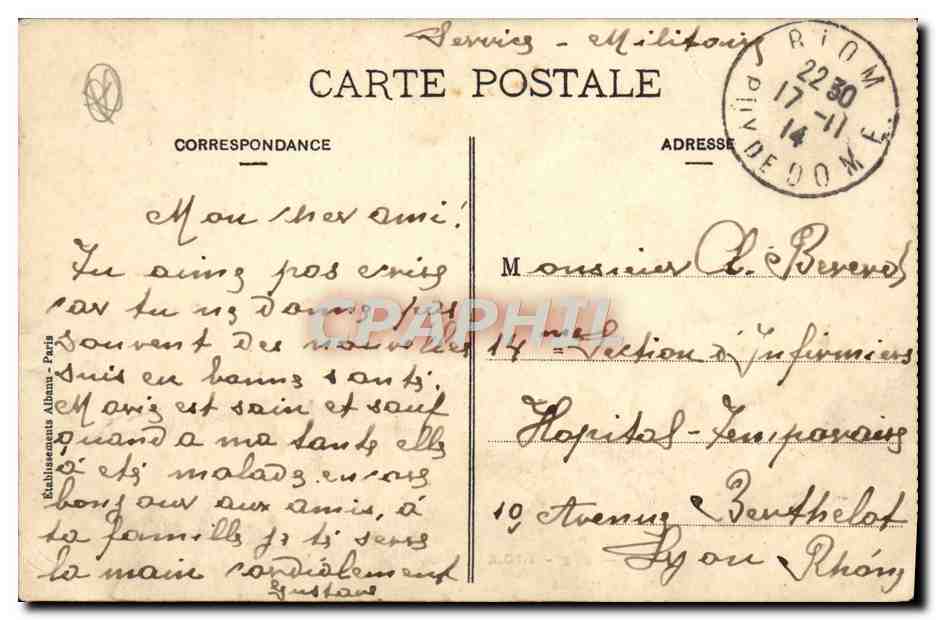 Service - Militaire
CARTE POSTALE
RIOM
22 30
17 -11
14
PUY DE DOME
CORRESPONDANCE
ADRESSE
Mon cher ami!
Tu aime pas écrire
car tu ne donne pas
souvent des nouvelles
suis en bonne santé.
Marie est sain et sauf
quand a ma tante elle
à été malade encore
bonjour aux amis, à
ta famille je te serre
la main cordialement
Gustave
Monsieur Ch.
14me Section d'Infirmiers
Hopital-Temporaire
10, Avenue Berthelot
Lyon Rhône
Établissements Albanu - Paris
CPAPHIL